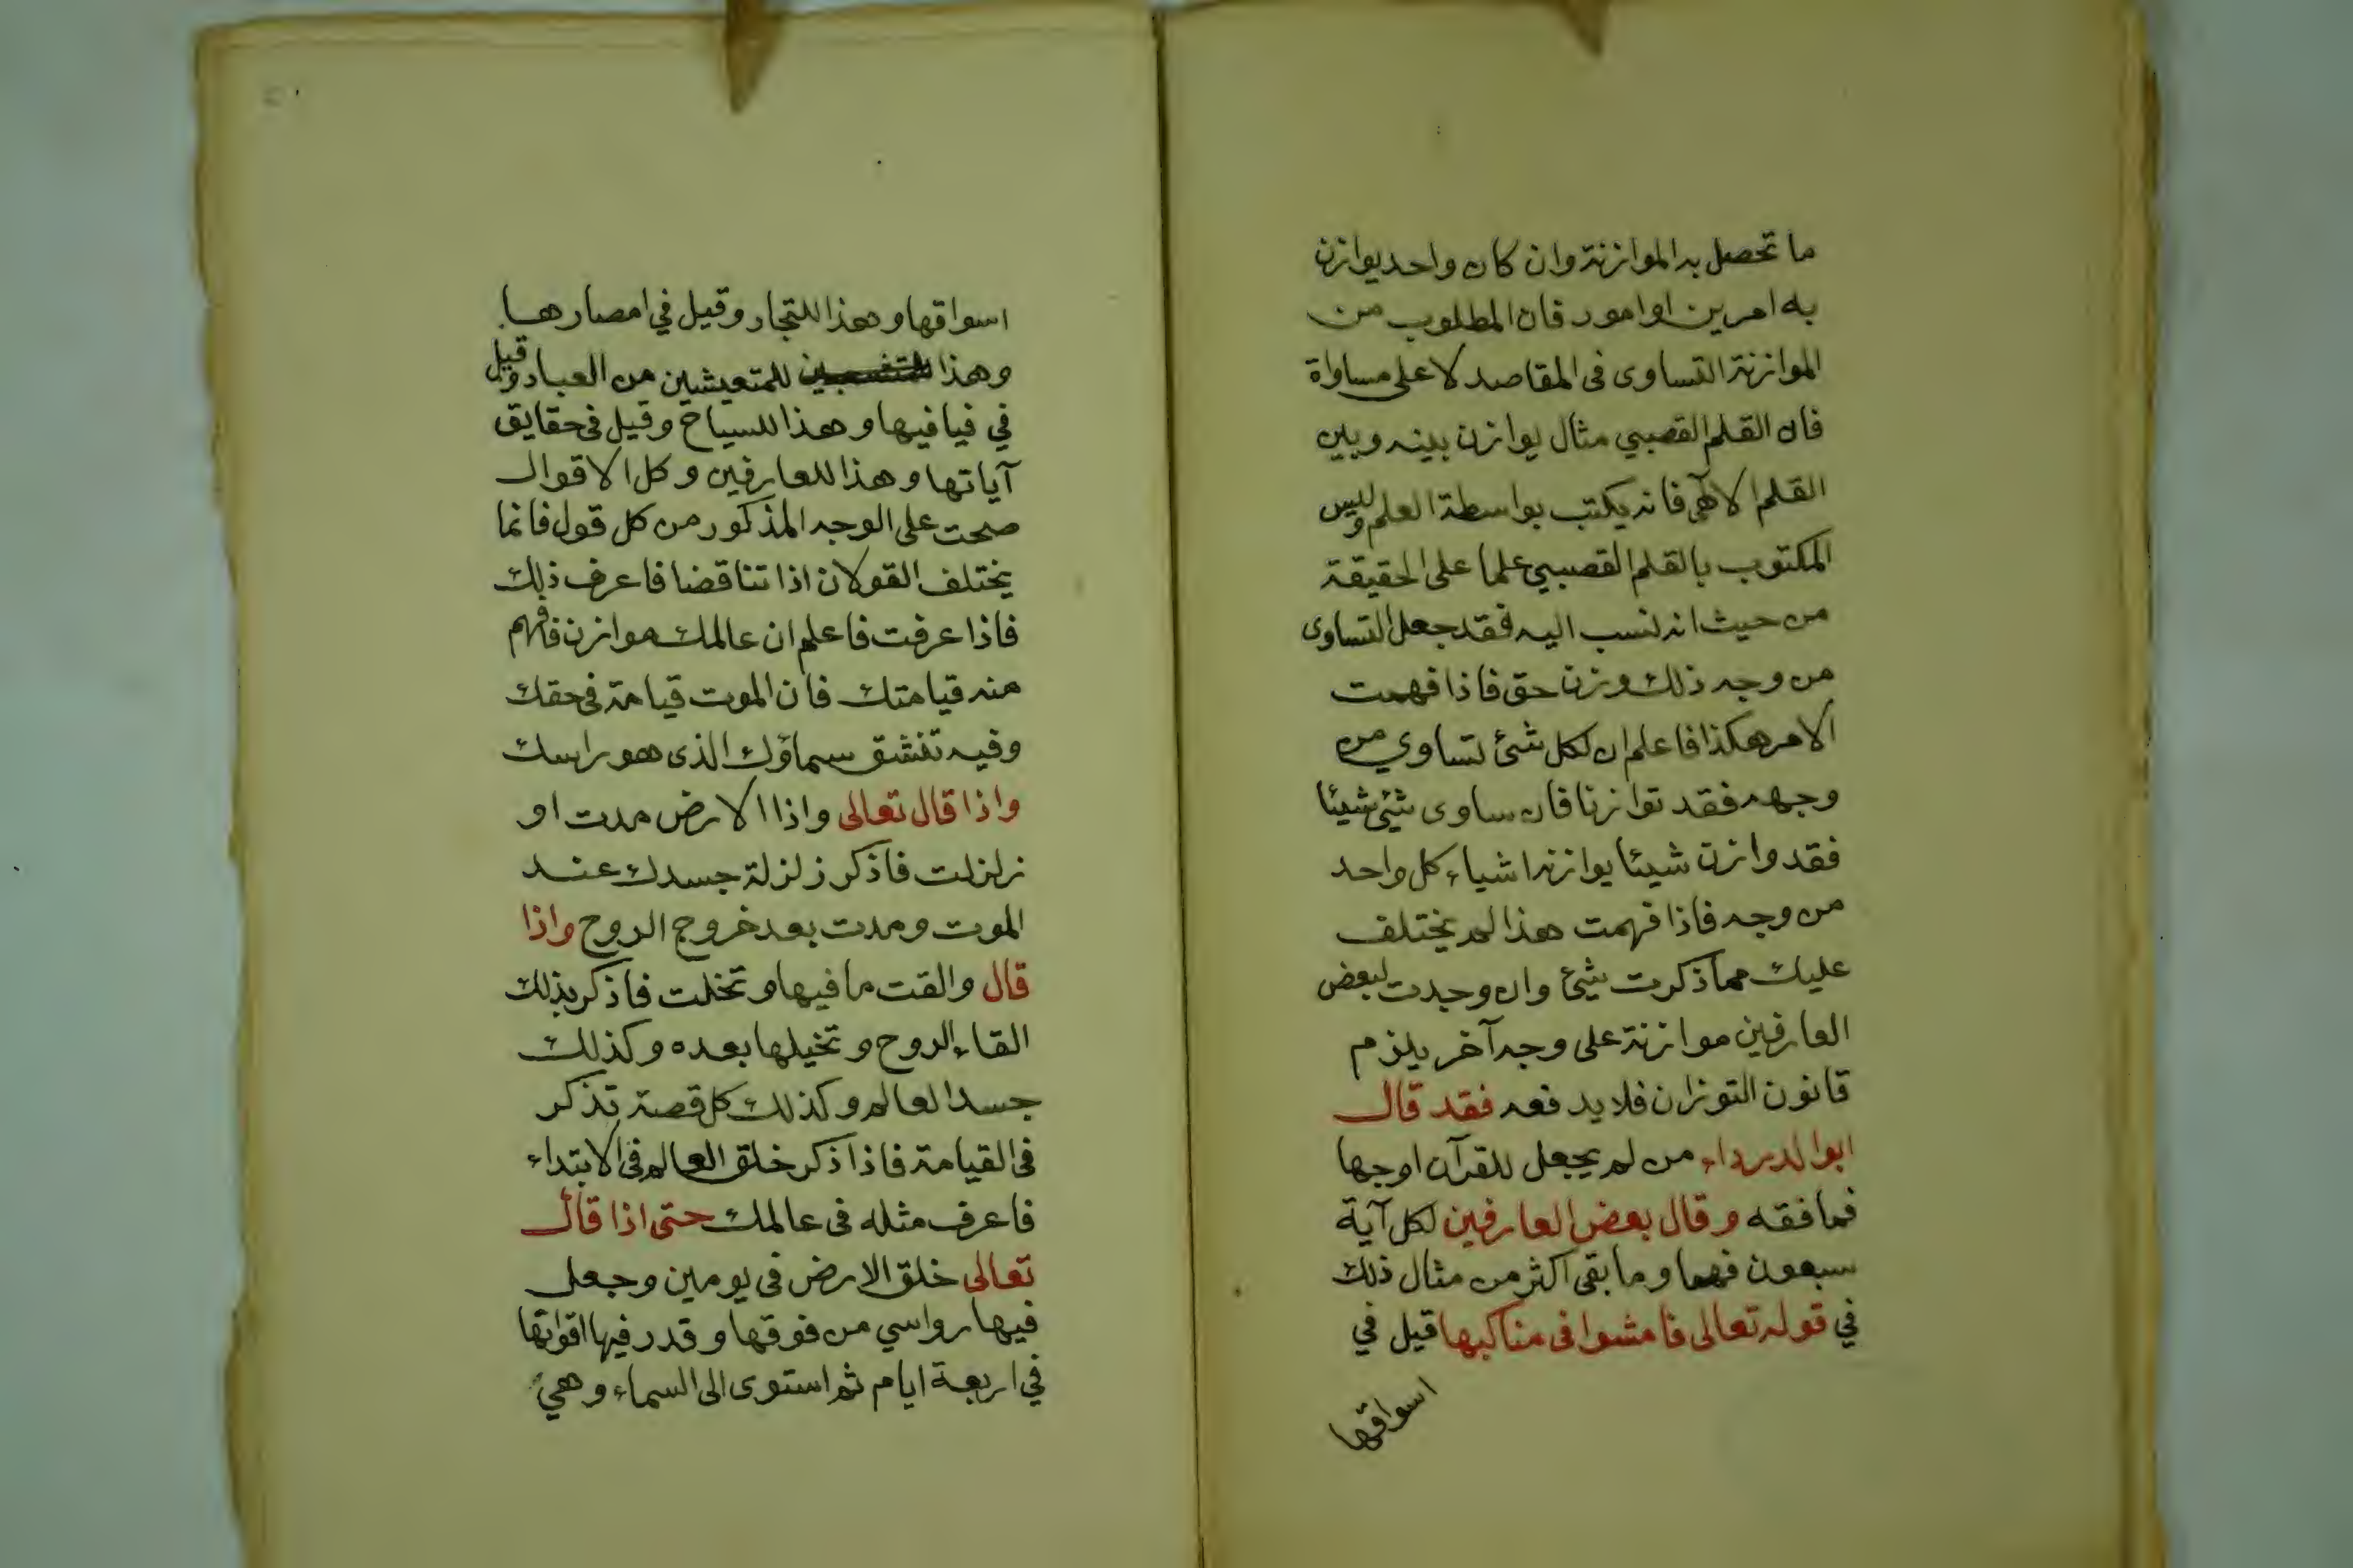 ما تحصل به الموازنة وان كان واحد يوازن
به امرين او امور فان المطلوب من
الموازنة التساوى فى المقاصد لا على مساواة
فان القلم القصبي مثال يوازن بينه وبين
القلم الالآهي فانه يكتب بواسطة العلم وليس
المكتوب بالقلم القصبي علما على الحقيقة
من حيث انه نسب اليه فقد جعل التساوى
من وجه ذلك وزن حق فاذا فهمت
الامر هكذا فاعلم ان لكل شئ تساوي من
وجهه فقد توازنا فان ساوى شئ شيئا
فقد وازن شيئا يوازنه اشياء كل واحد
من وجه فاذا فهمت هذا لم يختلف
عليك مما ذكرت شئ وان وجدت لبعض
العارفين موازنة على وجه آخر يلزم
قانون التوزان فلا يدفعه فقد قال
ابو الدرداء من لم يجعل للقرآن اوجها
فما فقه وقال بعض العارفين لكل آية
سبعون فهما وما بقى اكثر من مثال ذلك
في قوله تعالى فامشوا فى مناكبها قيل في
اسواقها
اسواقها وهذا للتجار وقيل في امصارها
وهذا للمتعيشين من العباد وقيل
في فيافيها وهذا للسياح وقيل فى حقايق
آياتها وهذا للعارفين وكل الاقوال
صحت على الوجه المذكور من كل قول فانما
يختلف القولان اذا تناقضا فاعرف ذلك
فاذا عرفت فاعلم ان عالمك موازن فافهم
منه قيامتك فان الموت قيامة فى حقك
وفيه تنشق سماؤك الذى هو راسك
واذا قال تعالى واذا الارض مدت او
زلزلت فاذكر زلزلة جسدك عند
الموت ومدت بعد خروج الروح واذا
قال والقت ما فيها وتخلت فاذكر بذلك
القاء الروح وتخيلها بعده وكذلك
جسد العالم وكذلك كل قصة تذكر
فى القيامة فاذا ذكر خلق العالم فى الابتداء
فاعرف مثله فى عالمك حتى اذا قال
تعالى خلق الارض فى يومين وجعل
فيها رواسي من فوقها وقدر فيها اقواتها
في اربعة ايام ثم استوى الى السماء وهي